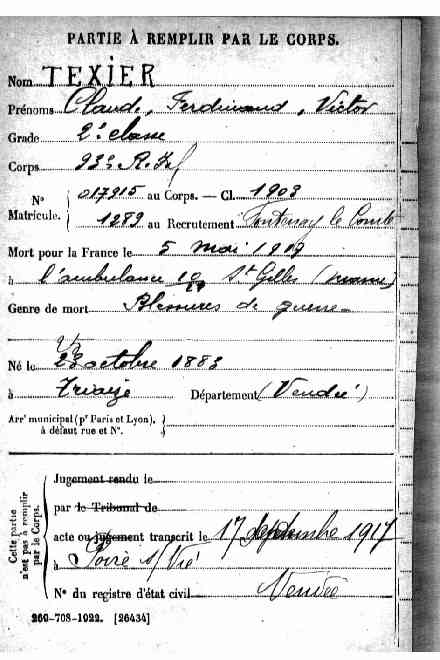 PARTIE À REMPLIR PAR LE CORPS.
Nom TEXIER
Prénoms Claude, Ferdinand, Victor
Grade 2e classe
Corps 93e R.Inf
N° Matricule. 017915 au Corps. — Cl. 1903
1289 au Recrutement Fontenay le Comte
Mort pour la France le 5 mai 1917
à l'ambulance St Gilles (Marne)
Genre de mort Blessures de guerre
Né le octobre 1883
à Triaize Département (Vendée)
Arrt municipal (pr Paris et Lyon),
à défaut rue et N°.
Cette partie n'est pas à remplir par le Corps.
Jugement rendu le
par le Tribunal de
acte ou jugement transcrit le 17 septembre 1917
à Poiré s/Vie
Vendée
N° du registre d'état civil
260-708-1922. [26434]